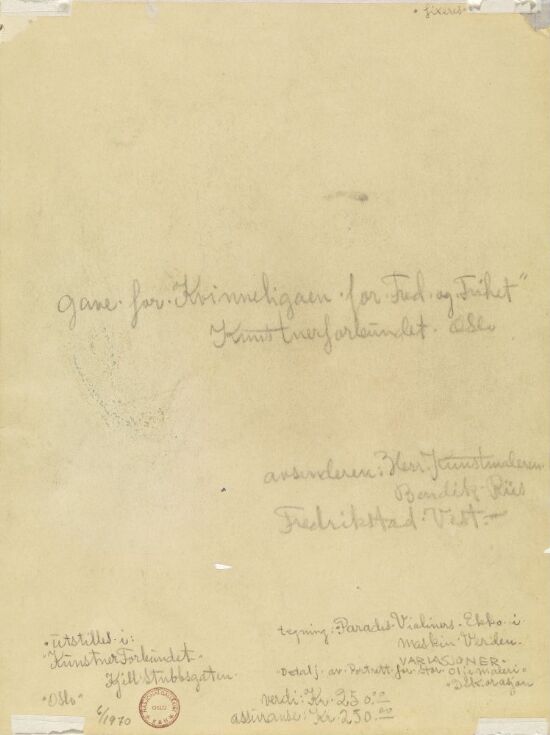 • fixeres
gave. for. Kvinneligaen. for. Fred. og. Frihet"
Kunstnerforbundet. Oslo
avsenderen: Herr. Kunstmaleren.
Bendik. Riis
Fredrikstad. Vest.—
tegning: Parades. Violiners. Ekko. i
maskin. Verden.
VARIASJONER.
Detalj. av. Portrett. for. stor. Oljemaleri"
"Dekorasjon"
verdi: Kr. 250.00
assuranse: Kr. 250.00
• utstilles. i:
"Kunstner Forbundet"
Kjell Stubbsgaten.
"Oslo"
6/1970
NASJONALGALLERIET
OSLO